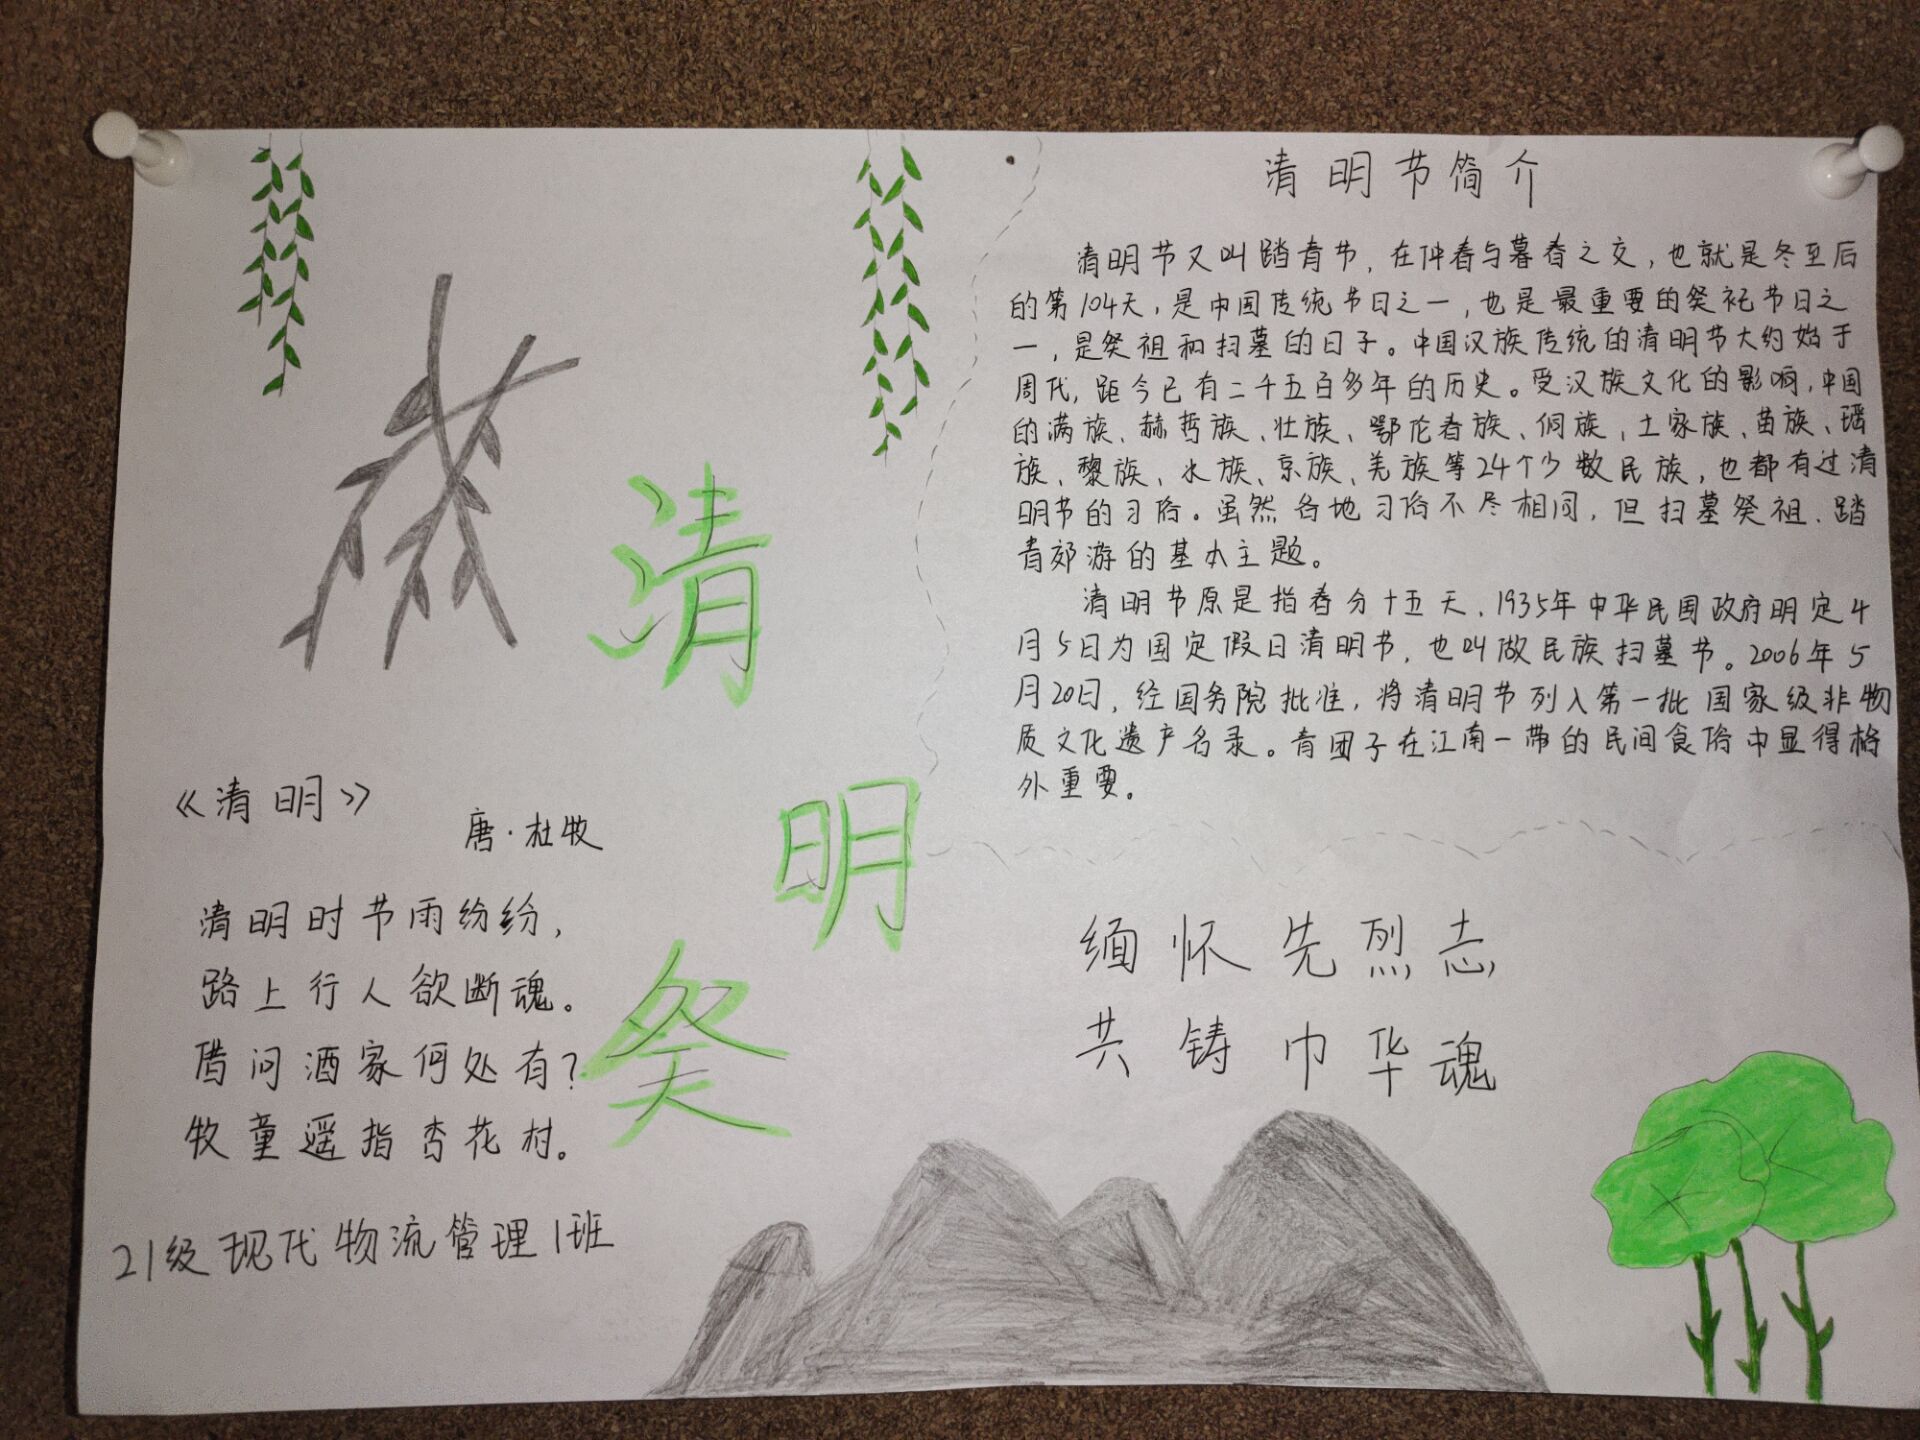 清明祭
《清明》
唐·杜牧
清明时节雨纷纷，
路上行人欲断魂。
借问酒家何处有？
牧童遥指杏花村。
21级现代物流管理1班
清明节简介
清明节又叫踏青节，在仲春与暮春之交，也就是冬至后
的第104天，是中国传统节日之一，也是最重要的祭祀节日之
一，是祭祖和扫墓的日子。中国汉族传统的清明节大约始于
周代，距今已有二千五百多年的历史。受汉族文化的影响，中国
的满族、赫哲族、壮族、鄂伦春族、侗族、土家族、苗族、瑶
族、黎族、水族、京族、羌族等24个少数民族，也都有过清
明节的习俗。虽然各地习俗不尽相同，但扫墓祭祖、踏
青郊游的基本主题。
清明节原是指春分十五天，1935年中华民国政府明定4
月5日为国定假日清明节，也叫做民族扫墓节。2006年5
月20日，经国务院批准，将清明节列入第一批国家级非物
质文化遗产名录。青团子在江南一带的民间食俗中显得格
外重要。
缅怀先烈志，
共铸中华魂